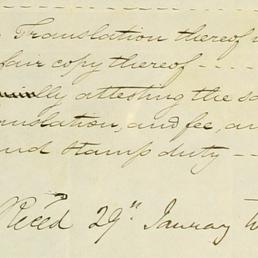 Translation thereof
fair copy thereof - - -
attesting the
and fee,
and Stamp duty -
Recd 29th January